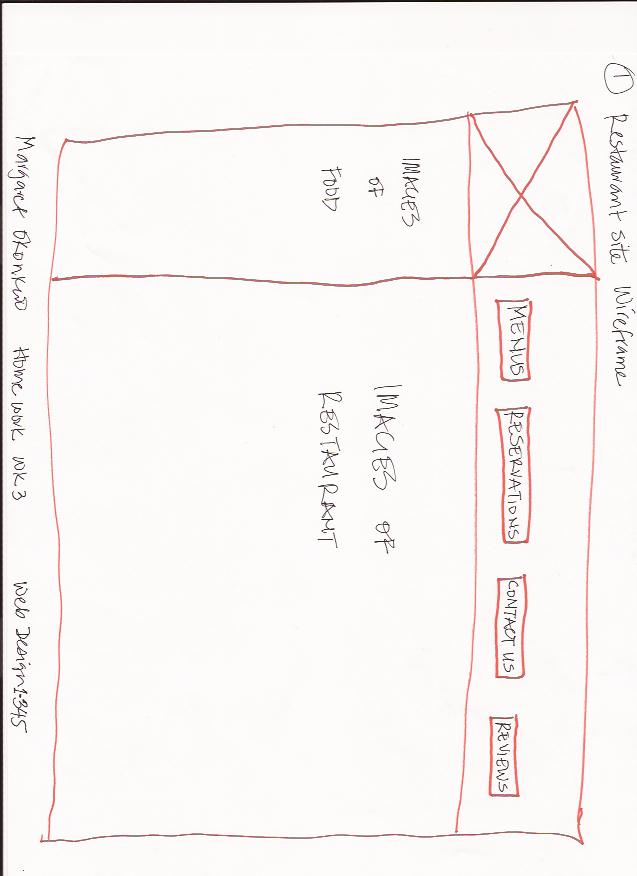 ① Restaurant site Wireframe
MENUS
RESERVATIONS
CONTACT US
REVIEWS
IMAGES
OF
FOOD
IMAGES OF
RESTAURANT
Margaret Okonkwo Homework WK3 Web Design 1-345